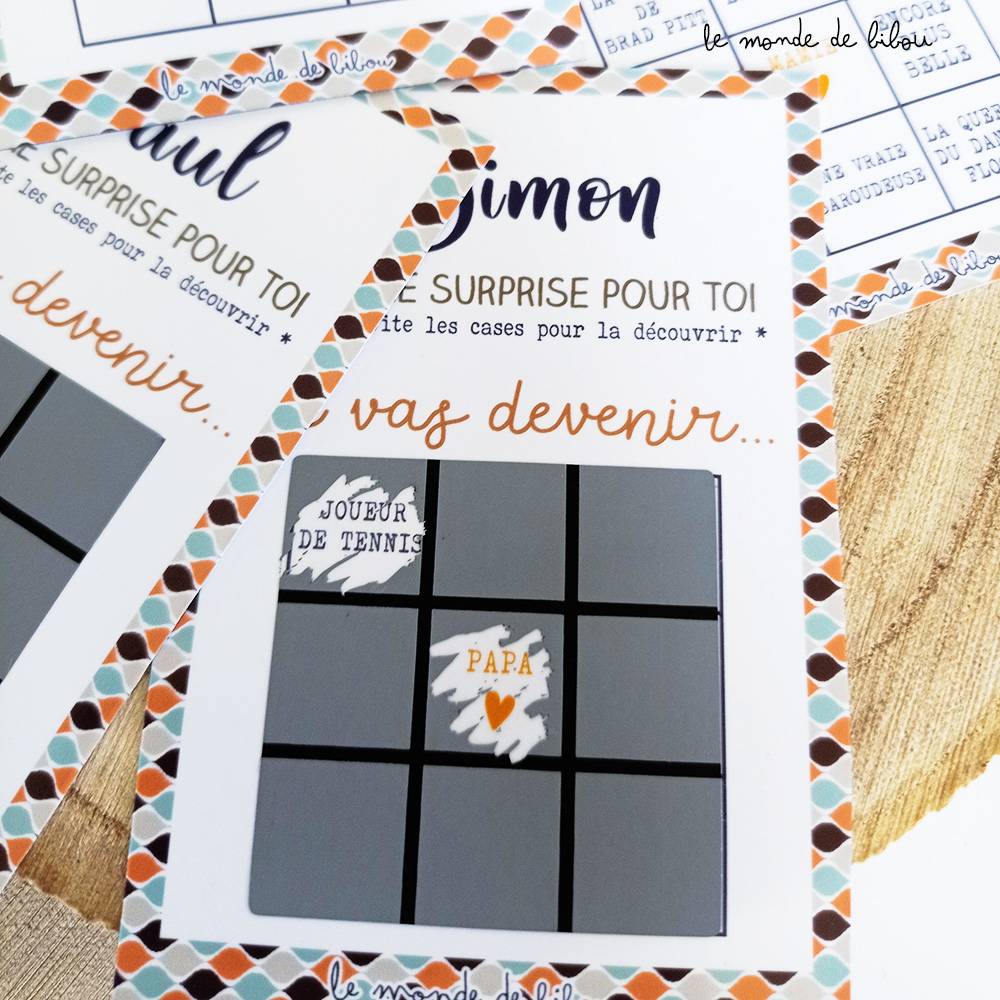 le monde de bibou
DE
BRAD PITT
ENCORE
BELLE
VRAIE
DU
le monde de bibou
monde de
aul
SURPRISE POUR TOI
les cases pour la découvrir *
devenir...
Simon
SURPRISE POUR TOI
les cases pour la découvrir *
vas devenir...
JOUEUR
DE TENNIS
PAPA
le monde de bibou